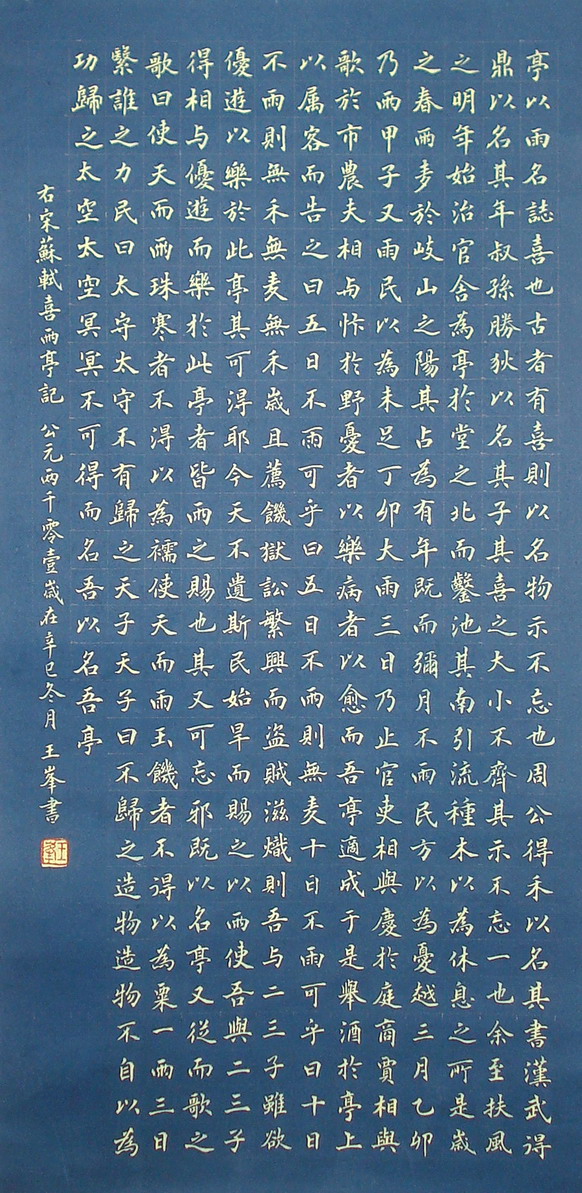 亭以雨名誌喜也古者有喜則以名物示不忘也周公得禾以名其書漢武得
鼎以名其年叔孫勝狄以名其子其喜之大小不齊其示不忘一也余至扶風
之明年始治官舍為亭於堂之北而鑿池其南引流種木以為休息之所是歲
之春雨麥於岐山之陽其占為有年既而彌月不雨民方以為憂越三月乙卯
乃雨甲子又雨民以為未足丁卯大雨三日乃止官吏相與慶於庭商賈相與
歌於市農夫相与忭於野憂者以樂病者以愈而吾亭適成于是舉酒於亭上
以属客而告之曰五日不雨可乎曰五日不雨則無麦十日不雨可乎曰十日
不雨則無禾無麦無禾歲且薦饑獄訟繁興而盜賊滋熾則吾与二三子雖欲
優遊以樂於此亭其可得耶今天不遺斯民始旱而賜之以雨使吾與二三子
得相与優遊而樂於此亭者皆雨之賜也其又可忘邪既以名亭又從而歌之
歌曰使天而雨珠寒者不得以為襦使天而雨玉饑者不得以為粟一雨三日
繄誰之力民曰太守太守不有歸之天子天子曰不歸之造物造物不自以為
功歸之太空太空冥冥不可得而名吾以名吾亭
右宋蘇軾喜雨亭記 公元兩千零壹歲在辛巳冬月王峯書